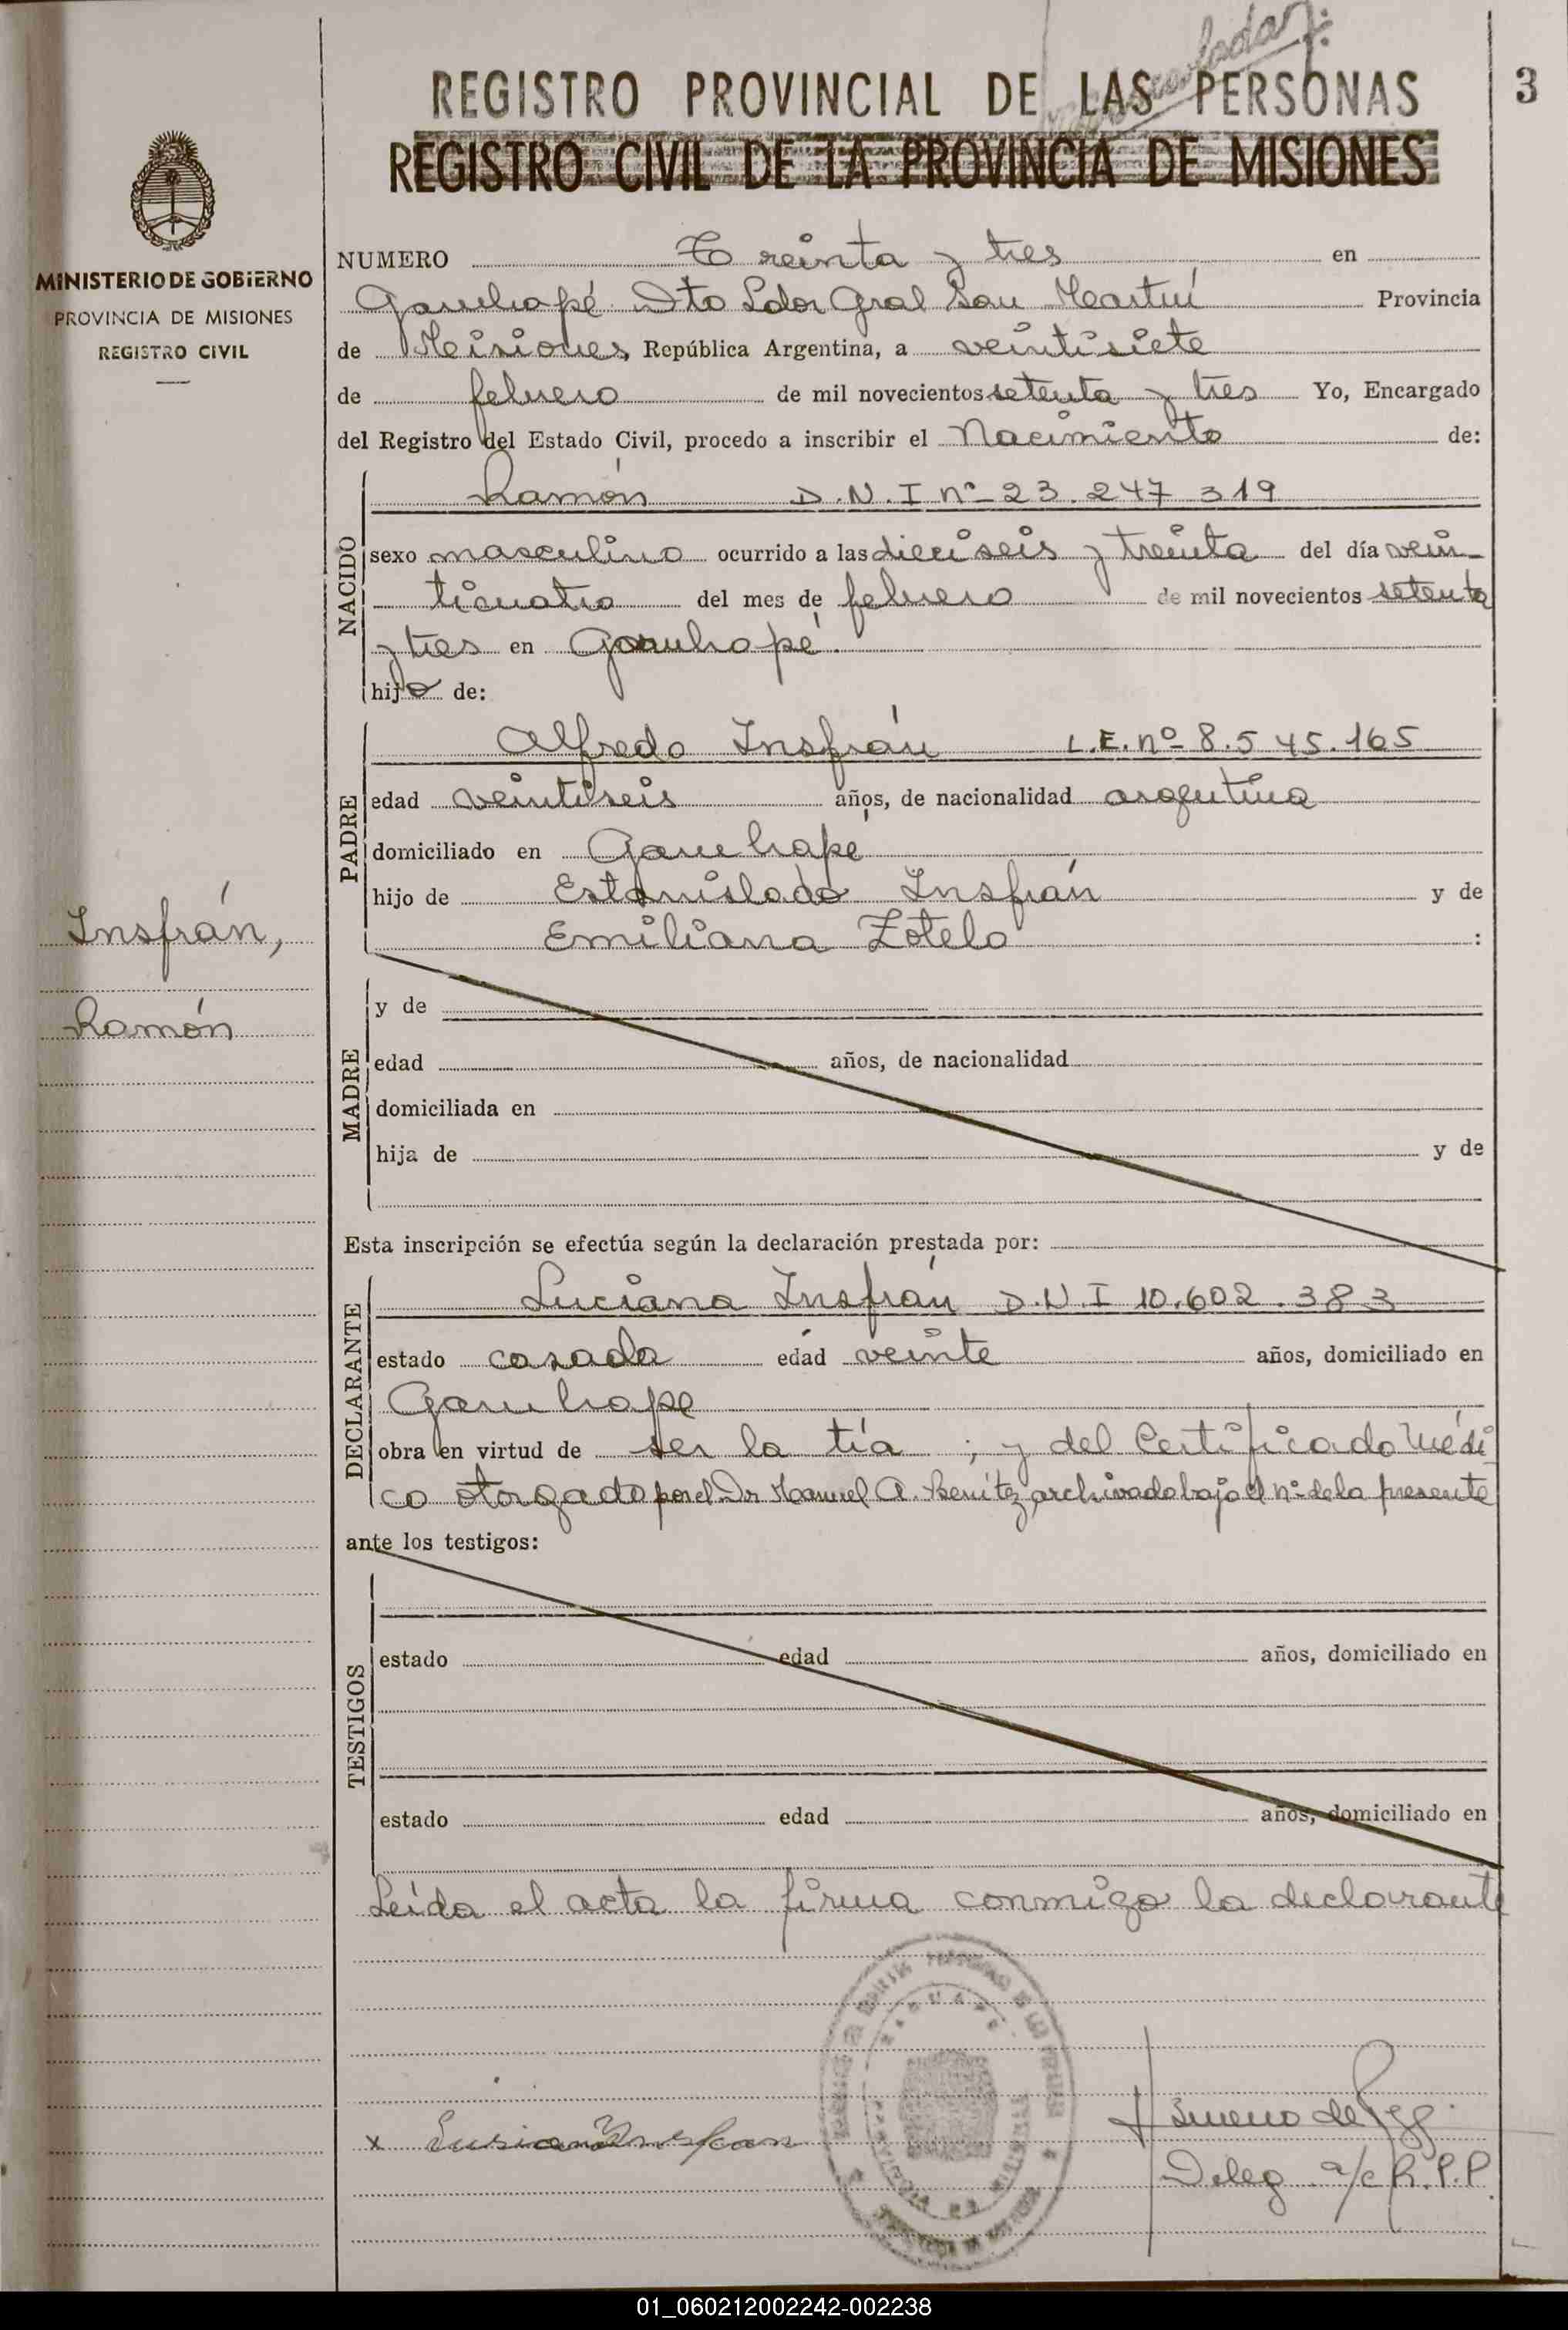 3
REGISTRO PROVINCIAL DE LAS PERSONAS
REGISTRO CIVIL DE LA PROVINCIA DE MISIONES
MINISTERIO DE GOBIERNO
PROVINCIA DE MISIONES
REGISTRO CIVIL
NUMERO Treinta y tres en
Garuhapé Dto Ldor Gral San Martín Provincia
de Misiones República Argentina, a veintisiete
de febrero de mil novecientos setenta y tres Yo, Encargado
del Registro del Estado Civil, procedo a inscribir el Nacimiento de:
NACIDO
Ramón D.N.I nº 23.247 319
sexo masculino ocurrido a las dieciseis y treinta del día vein-
ticuatro del mes de febrero de mil novecientos setenta
y tres en Garuhapé.
hijo de:
PADRE
Alfredo Insfrán L.E. nº 8.545.165
edad veintiseis años, de nacionalidad argentina
domiciliado en Garuhapé
hijo de Estanislado Insfrán y de
Emiliana Zotelo :
Insfrán,
Ramón
MADRE
y de
edad años, de nacionalidad
domiciliada en
hija de y de
Esta inscripción se efectúa según la declaración prestada por:
DECLARANTE
Luciana Insfrán D.N.I 10.602.383
estado casada edad veinte años, domiciliado en
Garuhape
obra en virtud de ser la tía ; y del Certificado Médi
co otorgado por el Dr Manuel A. Benítez archivado bajo el nº de la presente
ante los testigos:
TESTIGOS
estado edad años, domiciliado en
estado edad años, domiciliado en
Leída el acta la firma conmigo la declarante
x Lusiana Insfran
Deleg a/c R.P.P.
01_060212002242-002238